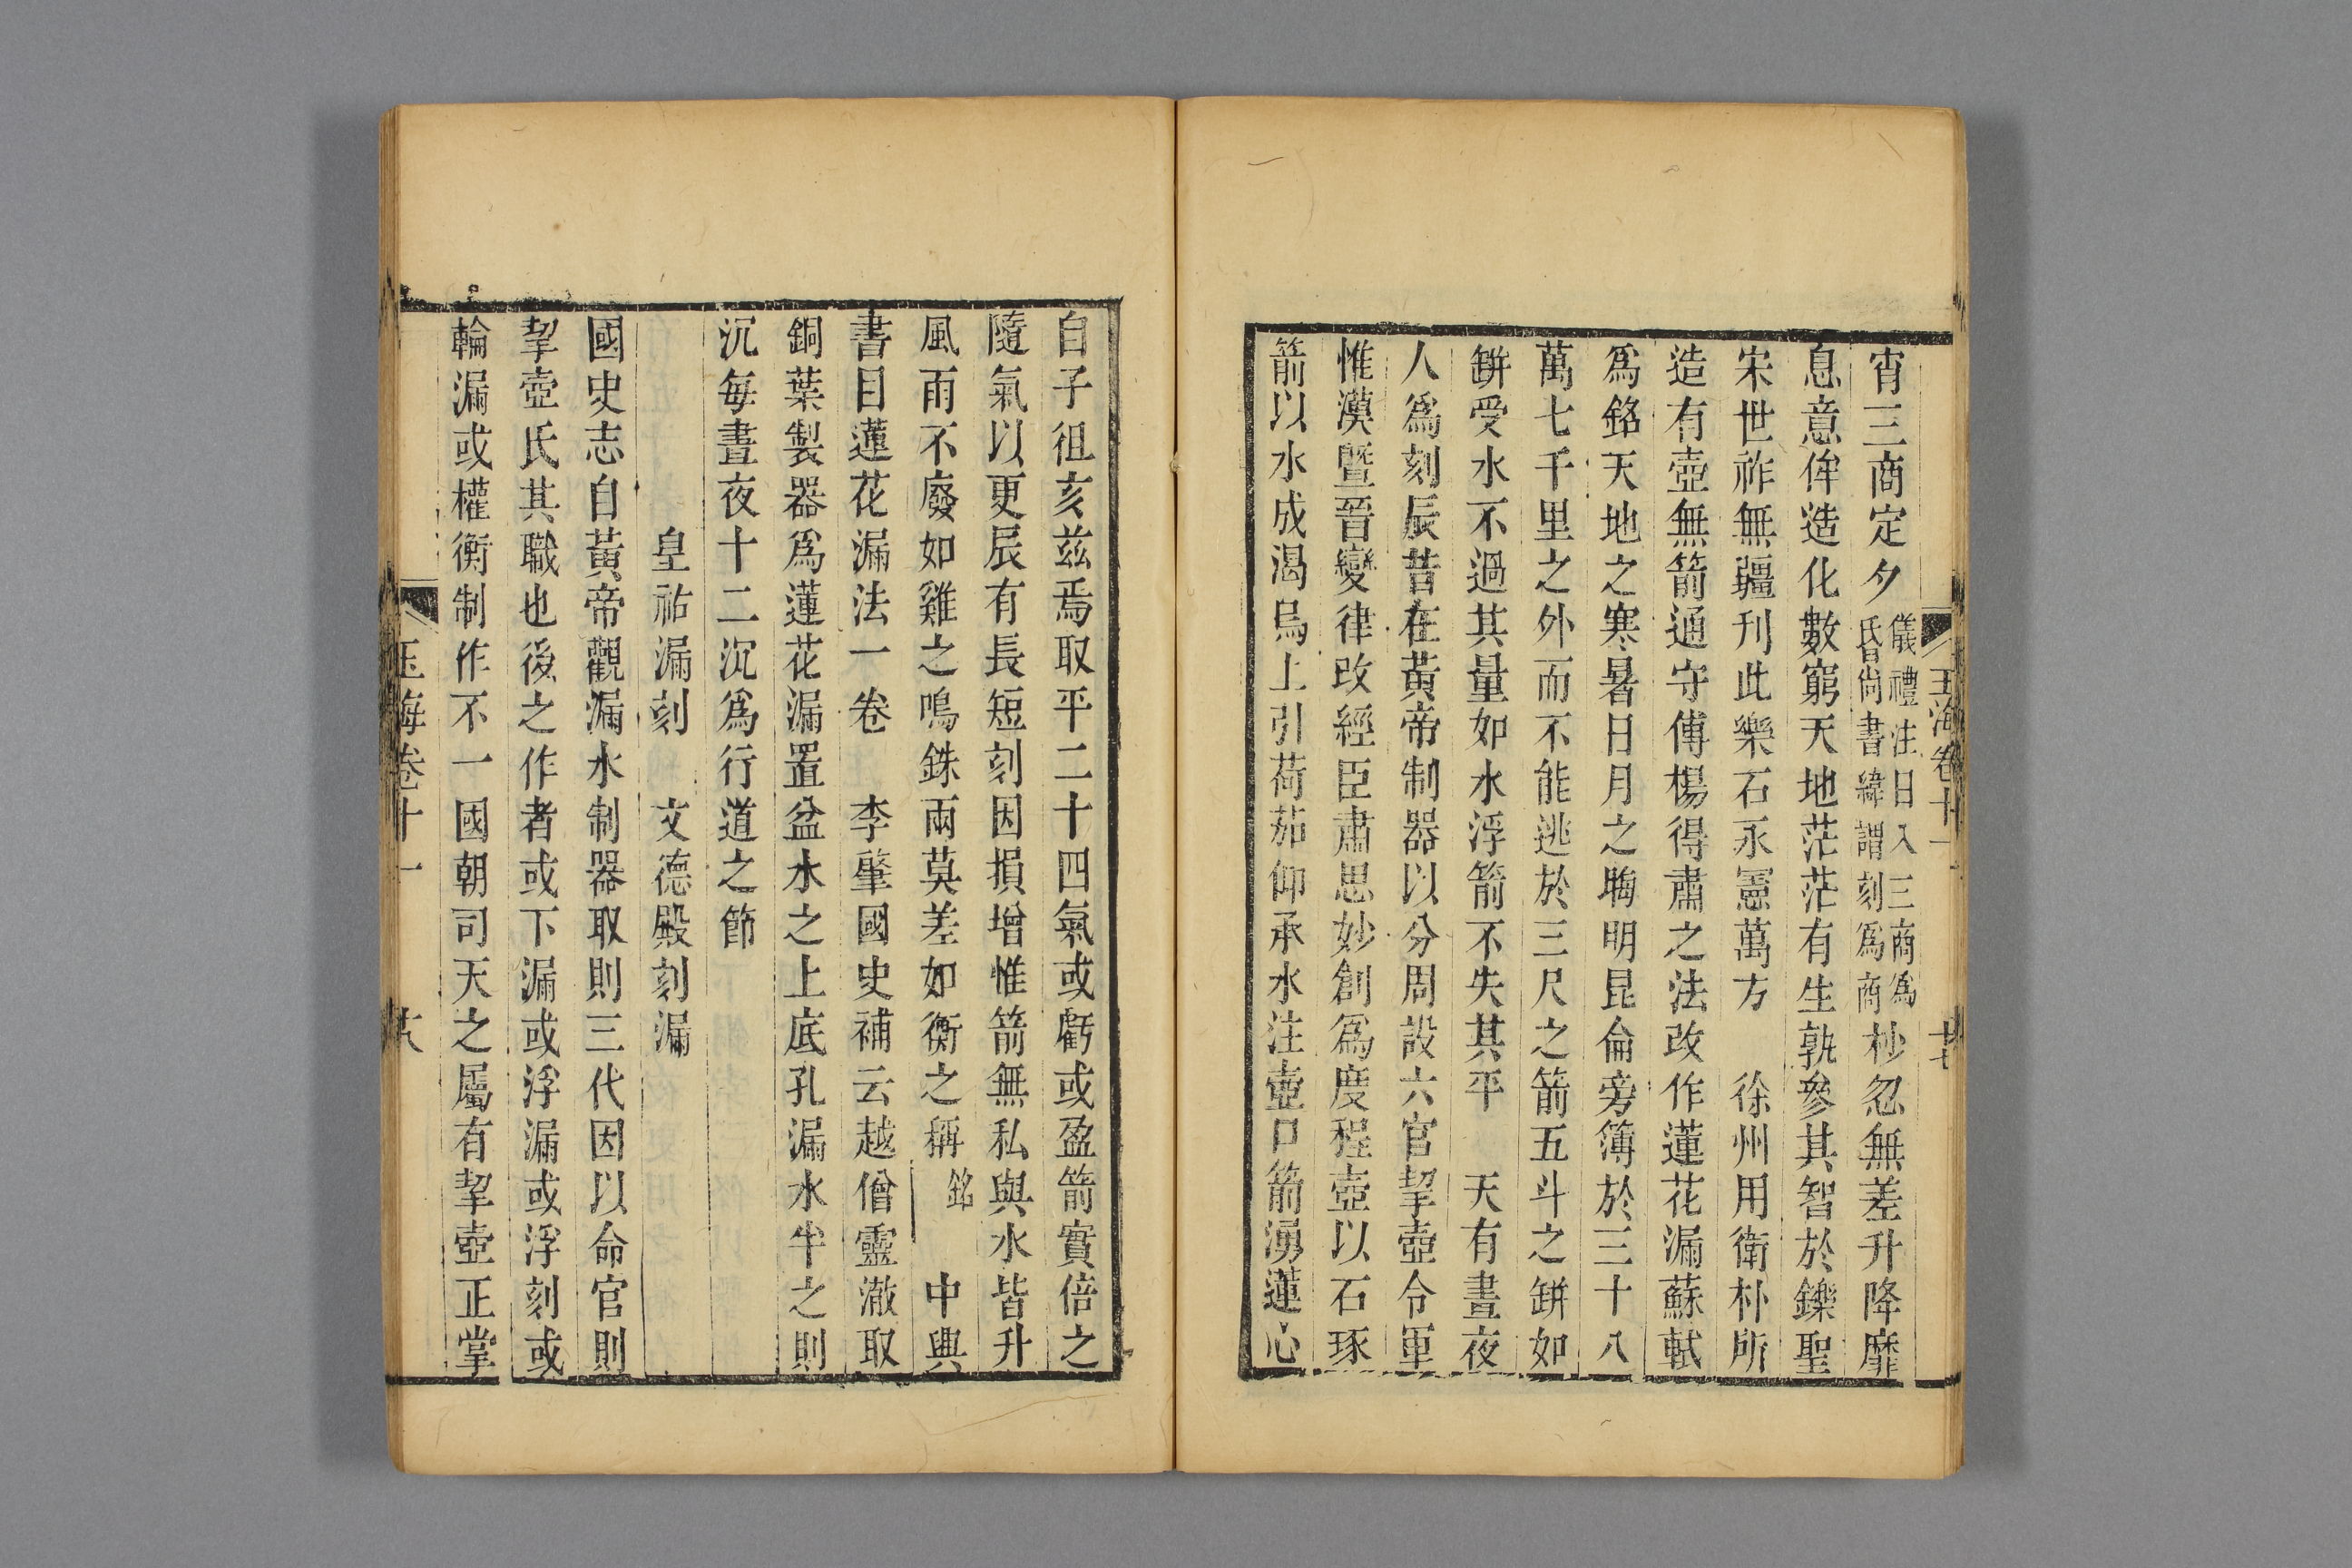 玉海卷十一
十七
宵三商定夕儀禮注日入三商爲昏尚書緯謂刻爲商杪忽無差升降靡
息意侔造化數窮天地茫茫有生孰參其智於鑠聖
宋世祚無疆刊此樂石永憲萬方　徐州用衛朴所
造有壺無箭通守傅楊得肅之法改作蓮花漏蘇軾
爲銘天地之寒暑日月之晦明昆倫旁簿於三十八
萬七千里之外而不能逃於三尺之箭五斗之缾如
缾受水不過其量如水浮箭不失其平　天有晝夜
人爲刻辰昔在黃帝制器以分周設六官挈壺令軍
惟漢暨晉變律改經臣肅思妙創爲度程壺以石琢
箭以水成渴烏上引荷茄仰承水注壺口箭湧蓮心
自子徂亥兹焉取平二十四氣或虧或盈箭實倍之
隨氣以更辰有長短刻因損增惟箭無私與水皆升
風雨不廢如雞之鳴銖兩莫差如衡之稱銘　中興
書目蓮花漏法一卷　李肇國史補云越僧靈澈取
銅葉製器爲蓮花漏置盆水之上底孔漏水半之則
沉每晝夜十二沉爲行道之節
皇祐漏刻　文德殿刻漏
國史志自黃帝觀漏水制器取則三代因以命官則
挈壺氏其職也後之作者或下漏或浮漏或浮刻或
輪漏或權衡制作不一國朝司天之屬有挈壺正掌
玉海卷十一
十八